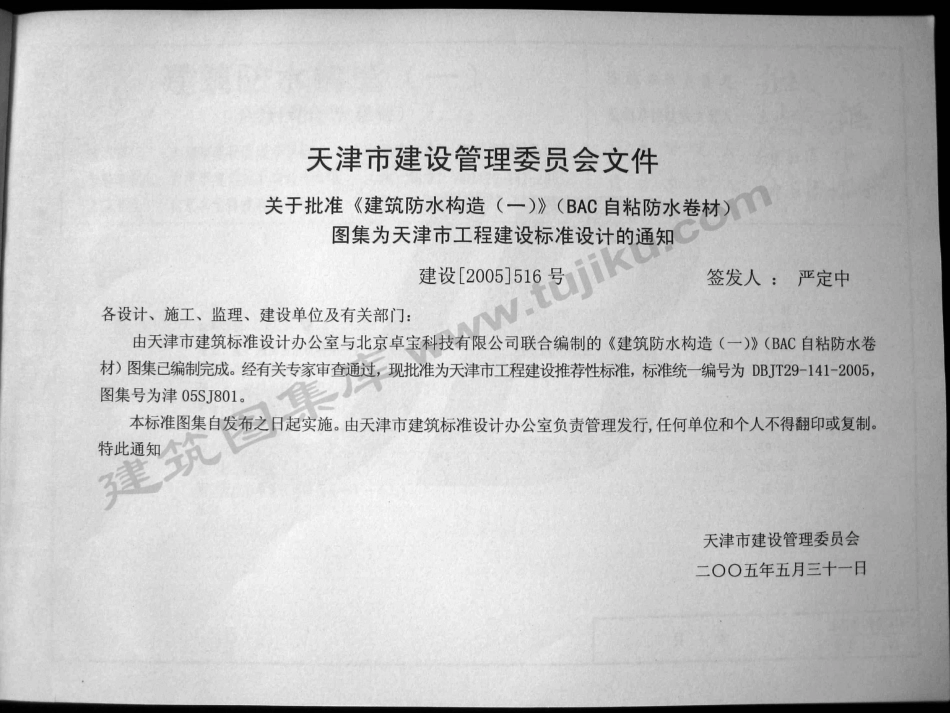 天津市建设管理委员会文件
关于批准《建筑防水构造（一）》（BAC自粘防水卷材）
图集为天津市工程建设标准设计的通知
建设[2005]516号 签发人：严定中
各设计、施工、监理、建设单位及有关部门：
由天津市建筑标准设计办公室与北京卓宝科技有限公司联合编制的《建筑防水构造（一）》（BAC自粘防水卷
材）图集已编制完成。经有关专家审查通过，现批准为天津市工程建设推荐性标准，标准统一编号为 DBJT29-141-2005，
图集号为津 05SJ801。
本标准图集自发布之日起实施。由天津市建筑标准设计办公室负责管理发行，任何单位和个人不得翻印或复制。
特此通知
天津市建设管理委员会
二〇〇五年五月三十一日
建筑图集库 www.tujiku.com